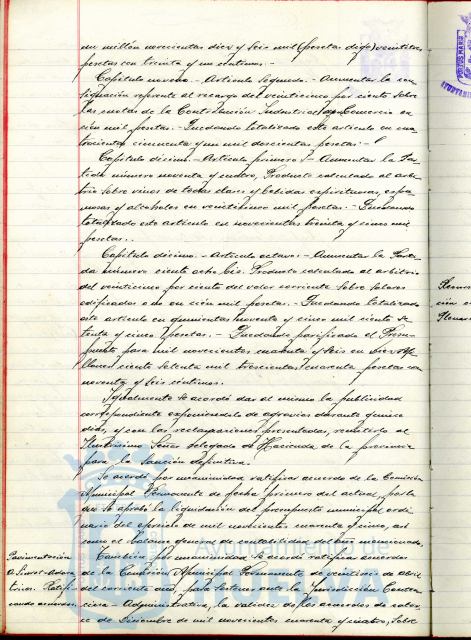 un millón novecientas diez y seis mil (pesetas digo) veintitres
pesetas con treinta y un centimos.-
Capítulo noveno.- Artículo segundo.- Aumentar la con-
signación referente al recargo del veinticinco por ciento sobre
las cuotas de la Contribución Industrial y de Comercio en
cien mil pesetas.- Quedando totalizado este artículo en cua-
trocientas cincuenta y un mil doscientas pesetas.-
Capítulo décimo.- Artículo primero.- Aumentar la Par-
tida número noventa y cuatro, Producto calculado al arbi-
trio sobre vinos de todas clases y bebidas espirituosas, espu-
mosas y alcoholes en veinticinco mil pesetas.- Quedando
totalizado este artículo en novecientas treinta y cinco mil
pesetas.-
Capítulo décimo.- Artículo octavo.- Aumentar la Parti-
da número ciento ocho bis. Producto calculado al arbitrio
del veinticinco por ciento del valor corriente sobre solares
edificados o no en cien mil pesetas.- Quedando totalizado
este artículo en quinientas noventa y cinco mil ciento se-
tenta y cinco pesetas.- Quedando parificado el Presu-
puesto para mil novecientos cuarenta y seis en
llones ciento setenta mil trescientas cuarenta pesetas con
noventa y seis céntimos.
Igualmente se acordó dar al mismo la publicidad
correspondiente exponiendolo de agravios durante quince
días, y con las reclamaciones presentadas, remitirlo al
Ilustrísimo Señor Delegado de Hacienda de la provincia
para la sanción definitiva.
Se acordó por unanimidad ratificar acuerdo de la Comisión
Municipal Permanente de fecha primero del actual, por la
que se aprobó la liquidación del presupuesto municipal ordi-
nario del ejercicio de mil novecientos cuarenta y cinco, así
como el balance general de contabilidad del año mencionado.
También por unanimidad se acordó ratificar acuerdo
de la Comisión Municipal Permanente de veintitres de abril
del corriente año, para sostener ante la Jurisdicción Conten-
ciosa-Administrativa, la validez de los acuerdos de cator-
ce de Diciembre de mil novecientos cuarenta y cuatro, sobre
Pavimentación